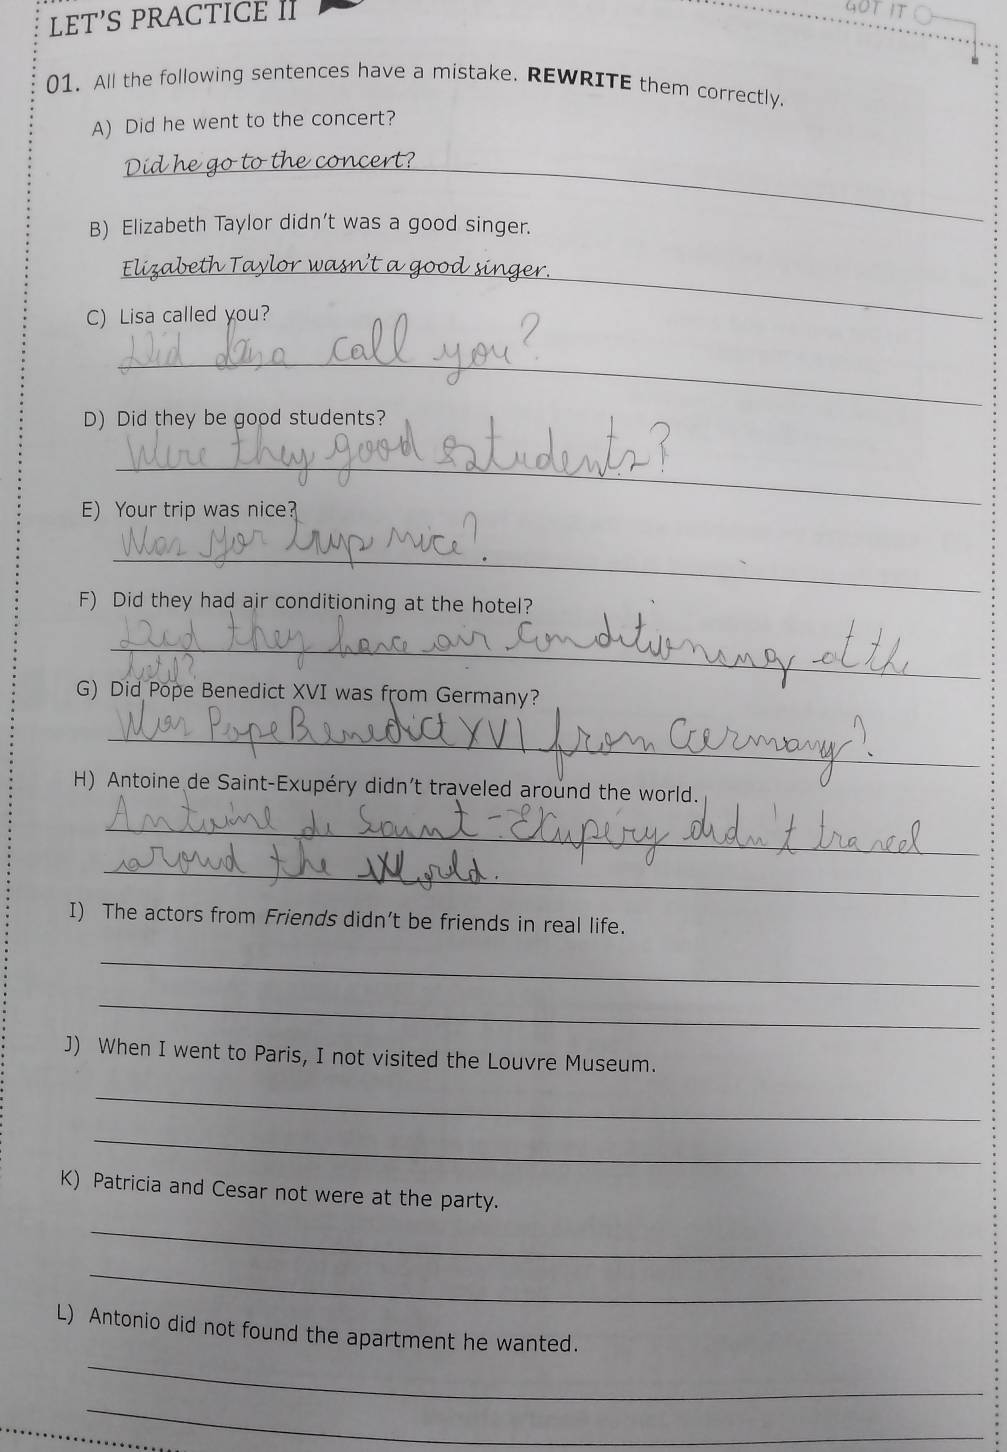 LET'S PRACTICE II
GOT IT
01. All the following sentences have a mistake. REWRITE them correctly.
A) Did he went to the concert?
Did he go to the concert?
B) Elizabeth Taylor didn't was a good singer.
Elizabeth Taylor wasn't a good singer.
C) Lisa called you?
Did Lisa call you?
D) Did they be good students?
Were they good students?
E) Your trip was nice?
Was yor trip nice?
F) Did they had air conditioning at the hotel?
Did they have air conditioning at the
hotel?
G) Did Pope Benedict XVI was from Germany?
Was Pope Benedict XVI from Germany?
H) Antoine de Saint-Exupéry didn't traveled around the world.
Antoine de Saint-Exupéry didn't travel
aroud the world.
I) The actors from Friends didn't be friends in real life.
J) When I went to Paris, I not visited the Louvre Museum.
K) Patricia and Cesar not were at the party.
L) Antonio did not found the apartment he wanted.